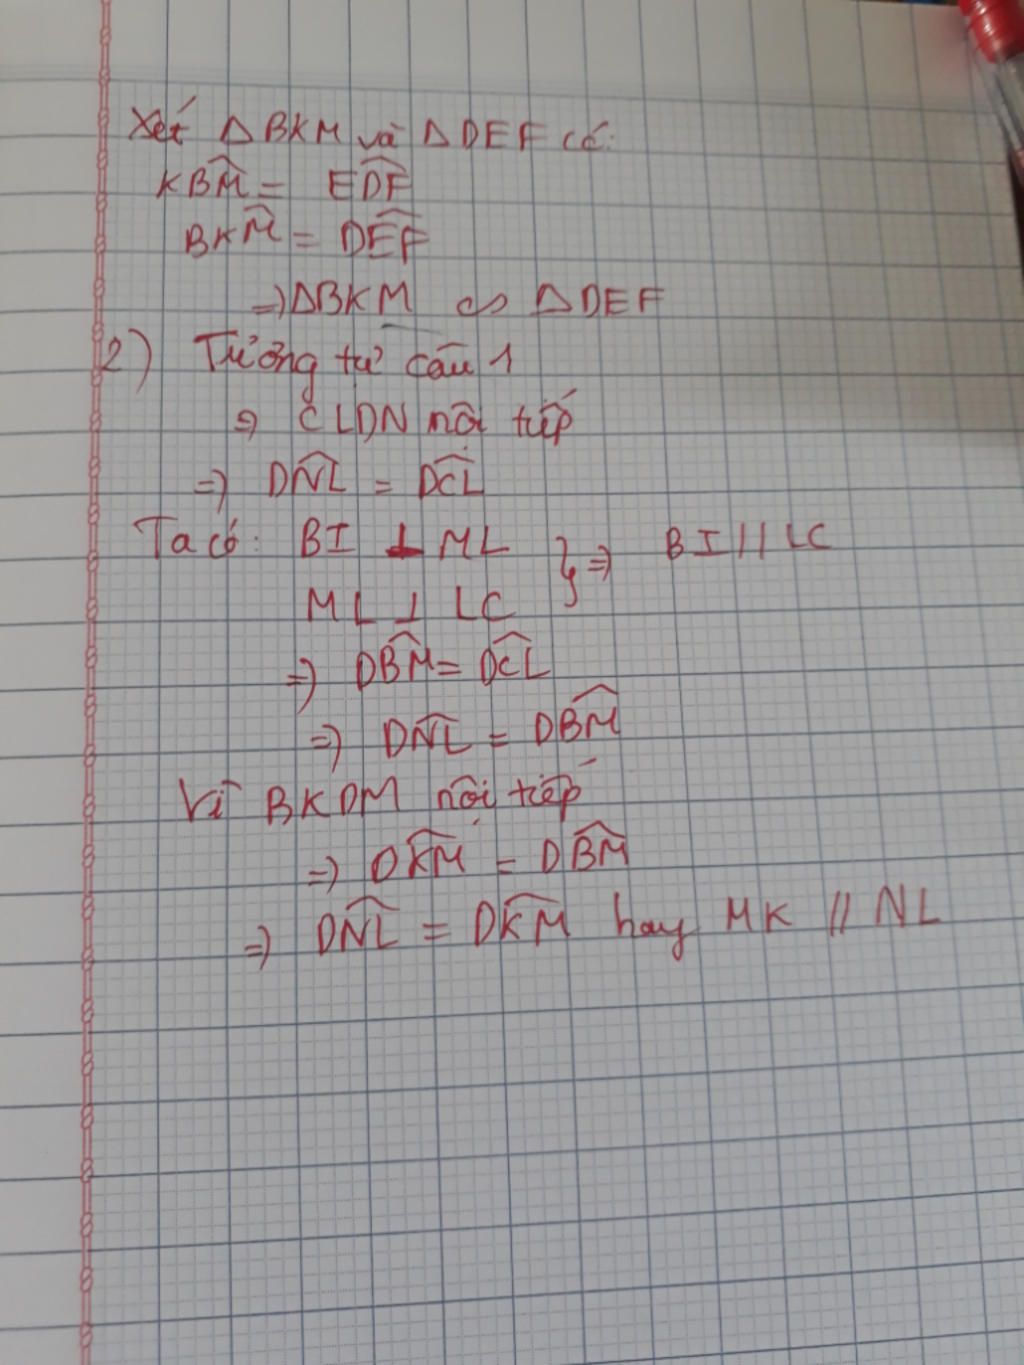 Xét ΔBKM và ΔDEF có:
KBM̂ = EDF̂
BKM̂ = DEF̂
=> ΔBKM ∽ ΔDEF
2) Tương tự câu 1
=> CLDN nội tiếp
=> DNL̂ = DCL̂
Ta có: BI ⊥ ML } => BI // LC
ML ⊥ LC
=> DBM̂ = DCL̂
=> DNL̂ = DBM̂
Vì BKDM nội tiếp
=> DKM̂ = DBM̂
=> DNL̂ = DKM̂ hay MK // NL